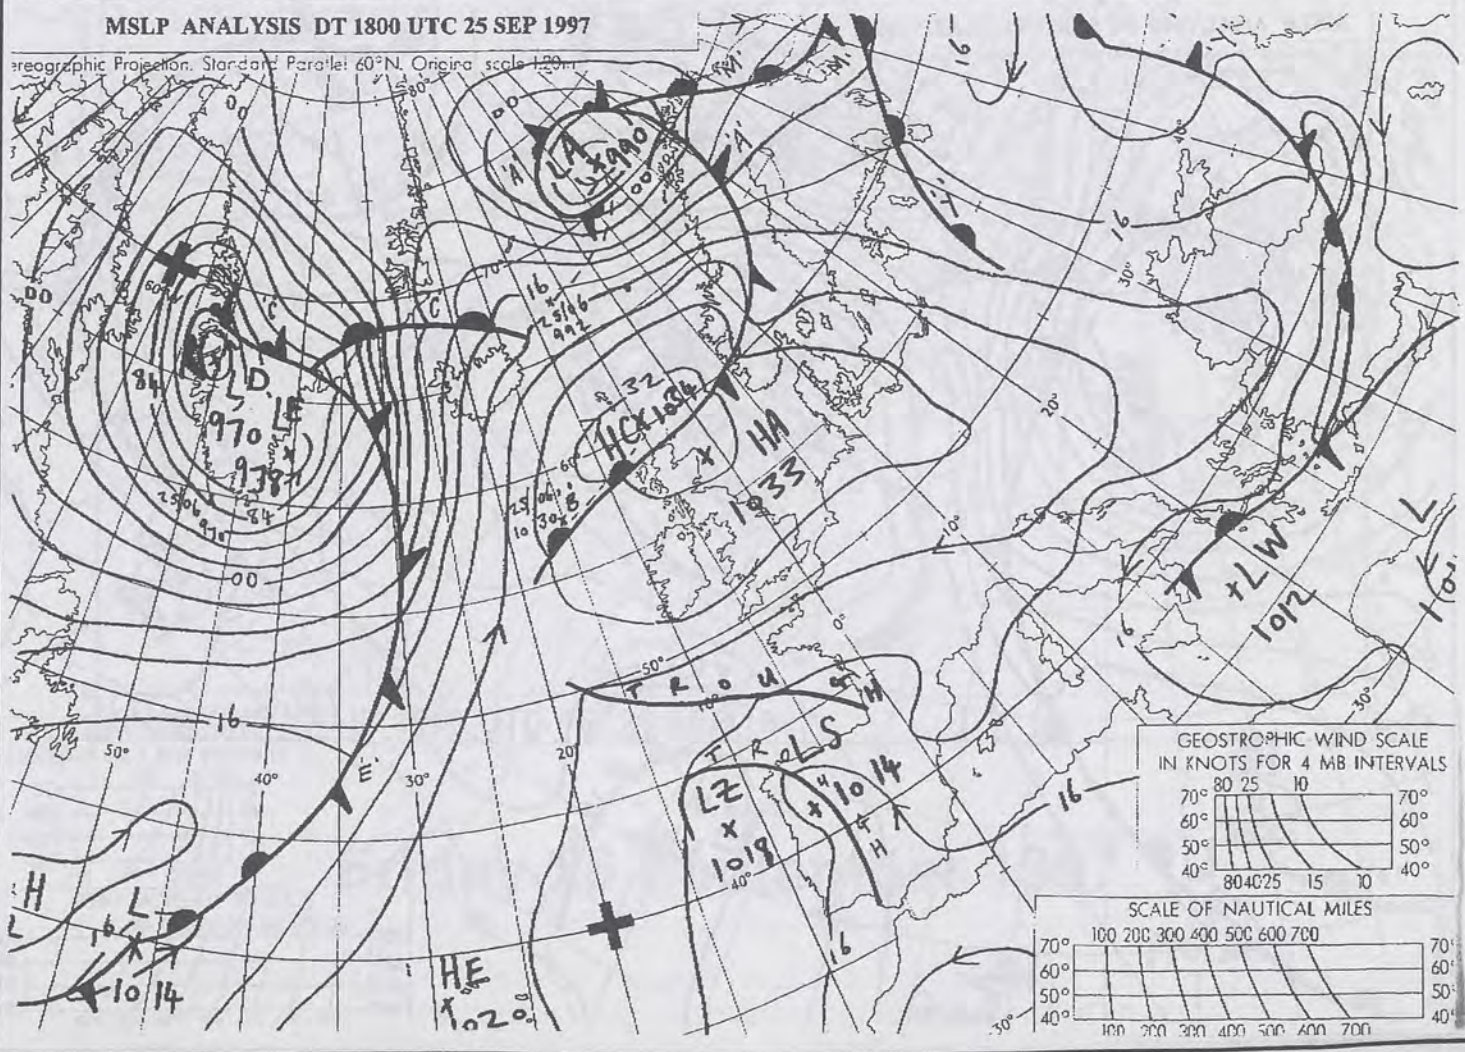 MSLP ANALYSIS DT 1800 UTC 25 SEP 1997
ereographic Projection. Standard Parallel 60°N. Original scale 1:20m
80°
00
M
M
16
40°
0
0
LA
x990
00
'A'
'A'
'L'
16
30°
70°
60°
00
'C'
C
16
x
25/06
992
84
LD
970
'LE
x
978
25/06
970
84
00
32
HCX1034
HA
x
1033
60°
25/06
10 30x
'B'
20°
10°
0°
LW
+
1012
L
10
16
50°
TROUGH
10°
30°
16
50°
40°
'E'
30°
20°
TROUGH
LS
+1014
LZ
x
1018
40°
16
16
H
L
L
16
x
1014
HE
x
1020
30°
GEOSTROPHIC WIND SCALE
IN KNOTS FOR 4 MB INTERVALS
80 25 10
70° 70°
60° 60°
50° 50°
40° 40°
80 40 25 15 10
SCALE OF NAUTICAL MILES
100 200 300 400 500 600 700
70° 70°
60° 60°
50° 50°
40° 40°
100 200 300 400 500 600 700